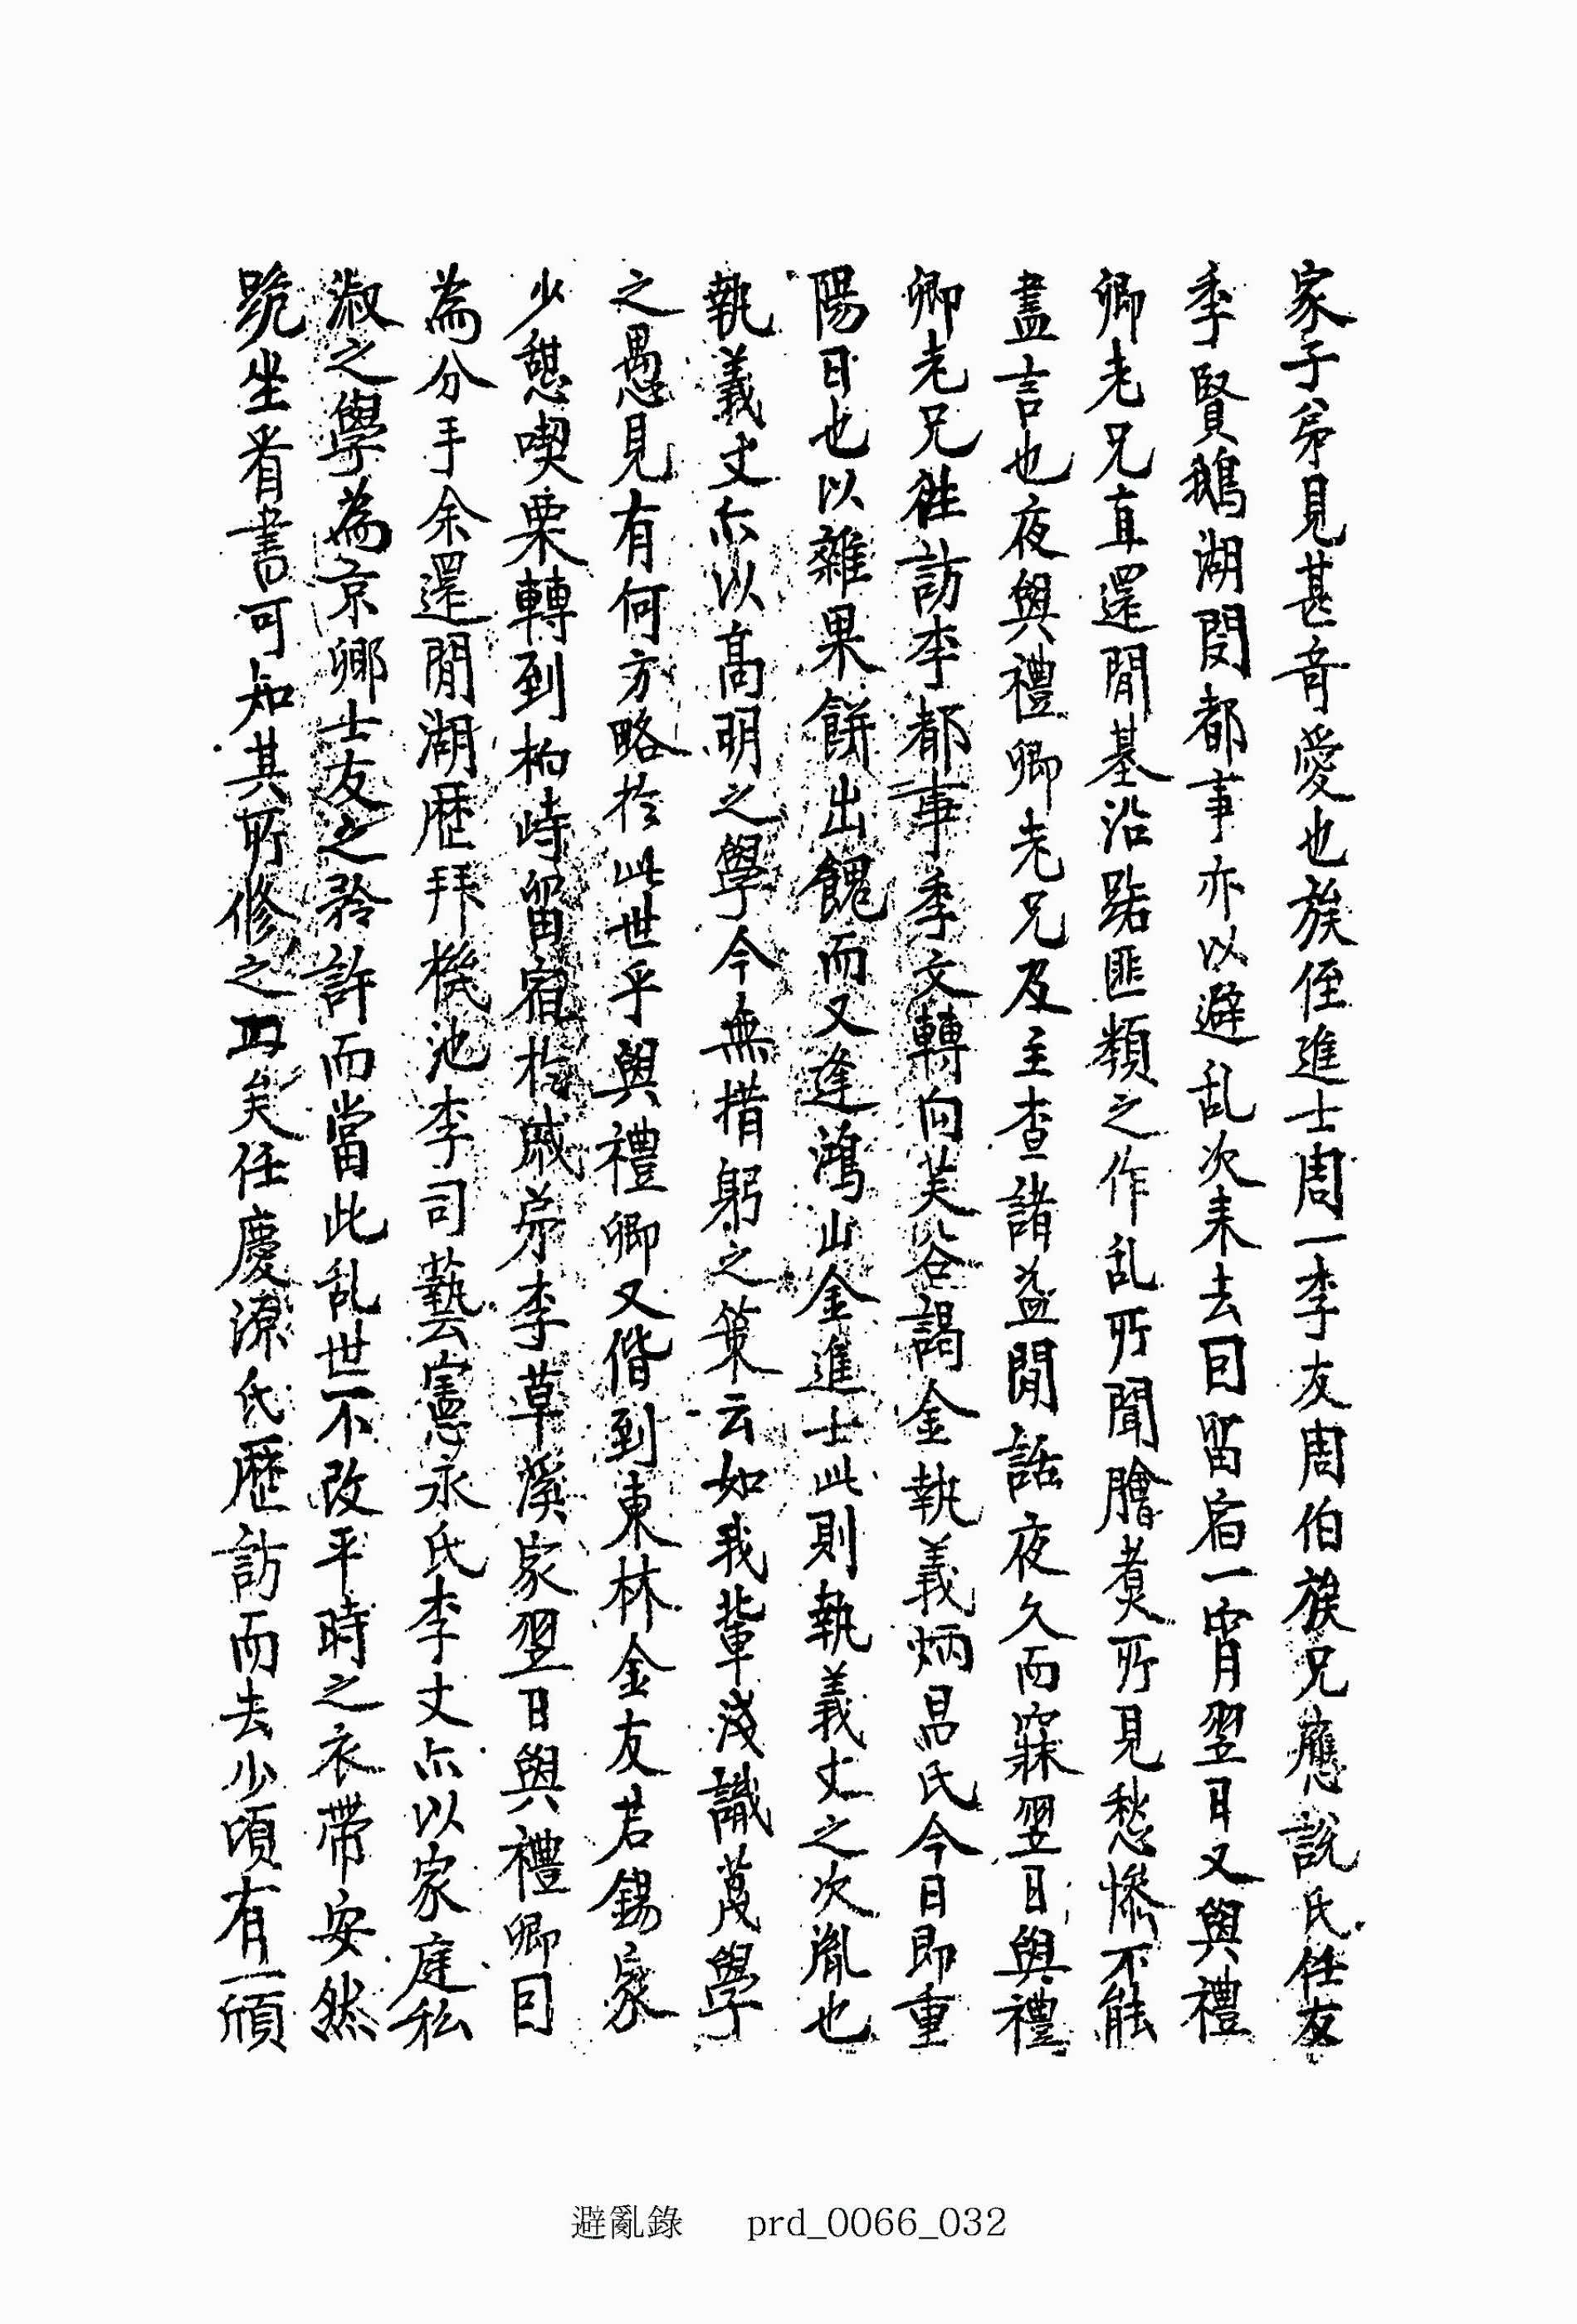 家子弟見甚奇愛也族侄進士周一李友周伯族兄應說氏任友
季賢鵝湖閔都事亦以避乱次来去囙留宿一宵翌日又與禮
卿老兄直還閒基沿路匪類之作乱所聞膾煑所見愁慘不能
盡言也夜與禮卿老兄及主查諸益閒話夜久而寐翌日與禮
卿老兄往訪李都事季文轉向芙谷謁金執義炳昌氏今日即重
陽日也以雜果餅出餽而又逢鴻山金進士此則執義丈之次胤也
執義丈亦以高明之學今無措躬之策云如我輩淺識蔑學
之愚見有何方略於此世乎與禮卿又偕到東林金友若錫家
少憇喫栗轉到柏峙留宿於戚弟李草溪家翌日與禮卿囙
為分手余還閒湖歴拜機池李司藝憲永氏李丈亦以家庭私
淑之學為京鄉士友之矜許而當此乱世不改平時之衣帶安然
跪坐看書可知其所修之固矣任慶源氏歴訪而去少頃有一頎